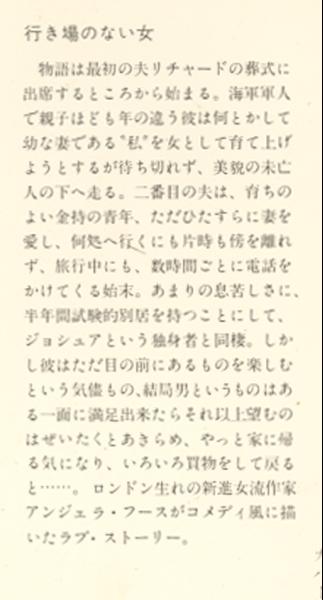 行き場のない女
物語は最初の夫リチャードの葬式に
出席するところから始まる。海軍軍人
で親子ほども年の違う彼は何とかして
幼な妻である〝私〟を女として育て上げ
ようとするが待ち切れず、美貌の未亡
人の下へ走る。二番目の夫は、育ちの
よい金持の青年、ただひたすらに妻を
愛し、何処へ行くにも片時も傍を離れ
ず、旅行中にも、数時間ごとに電話を
かけてくる始末。あまりの息苦しさに、
半年間試験的別居を持つことにして、
ジョシュアという独身者と同棲。しか
し彼はただ目の前にあるものを楽しむ
という気儘もの、結局男というものはあ
る一面に満足出来たらそれ以上望むの
はぜいたくとあきらめ、やっと家に帰
る気になり、いろいろ買物をして戻る
と……。ロンドン生れの新進女流作家
アンジェラ・フースがコメディ風に描
いたラブ・ストーリー。